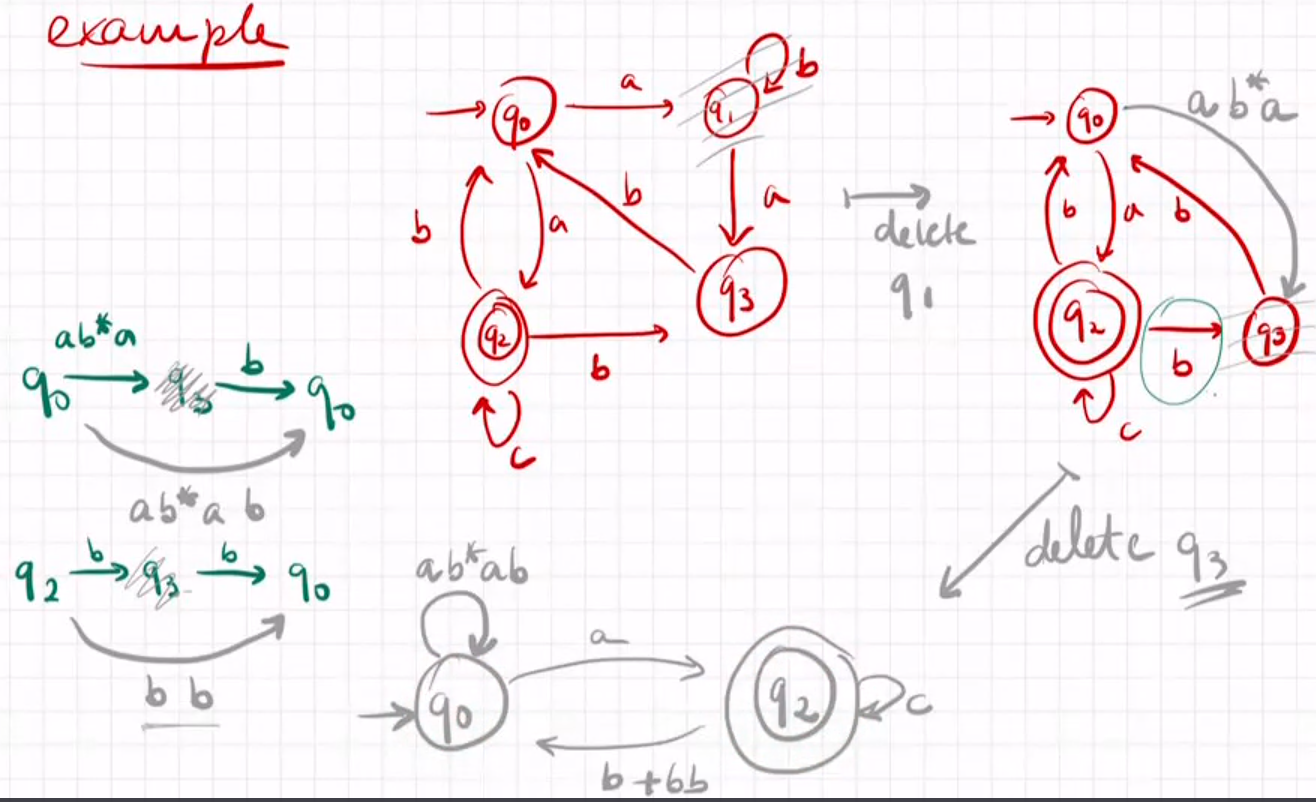 example
q0 a q1 b
b a b a
q2 b q3
c
delete
q1
q0 ab*a
b a b
q2 b q3
c
delete q3
ab*a b
q0 q3 q0
ab*a b
b b
q2 q3 q0
b b
ab*ab
q0 a q2 c
b+bb